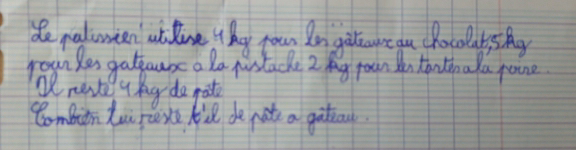 Le patissier utilise 4 kg pour les gâteaux au chocolat, 5 kg
pour les gateaux a la pistache 2 kg pour les tartes a la poire.
Il reste 4 kg de pate
Combien lui reste t'il de pâte a gâteau.